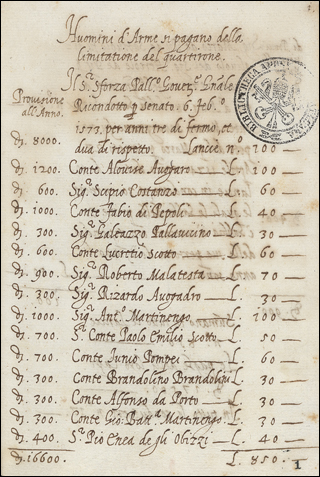 Huomini d'Arme si pagano della
limitatione del quartirone.
Il S.r Sforza Pall.o Gover.r G̃nale
Provisione
all'Anno.
Ricondotto p̱ Senato. 6. feb.o
1573. per anni tre di fermo, et
dj. 8000. dua di rispetto. Lancie n. 100
dj. 1200. Conte Alovise Avogaro L. 100
dj. 600. Sig.r Scipio Costanzo L. 60
dj. 1000. Conte Fabio di Pepoli L. 40
dj. 300. Sig.r Galeazzo Pallavicino L. 30
dj. 600. Conte Lucretio Scotto L. 60
dj. 900. Sig.r Roberto Malatesta L. 70
dj. 300. Sig.r Rizardo Avogadro L. 30
dj. 1000. Sig.r Ant.o Martinengo L. 100
dj. 700. S.r Conte Paolo Emilio Scotto L. 50
dj. 700. Conte Junio Pompei L. 60
dj. 300. Conte Brandolino Brandolini L. 30
dj. 300. Conte Alfonso da Porto L. 30
dj. 300. Conte Gio. Batt.a Martinengo L. 30
dj. 400. S.r Pio Enea de gli Obizzi L. 40
dj. 16600. L. 850.
1